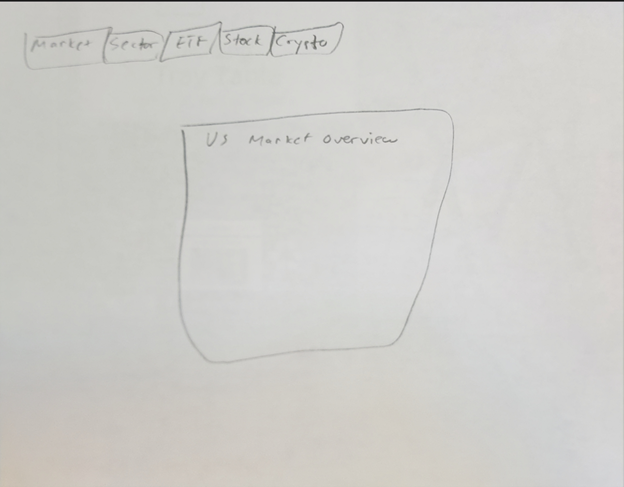 Market Sector ETF Stock Crypto
US Market Overview